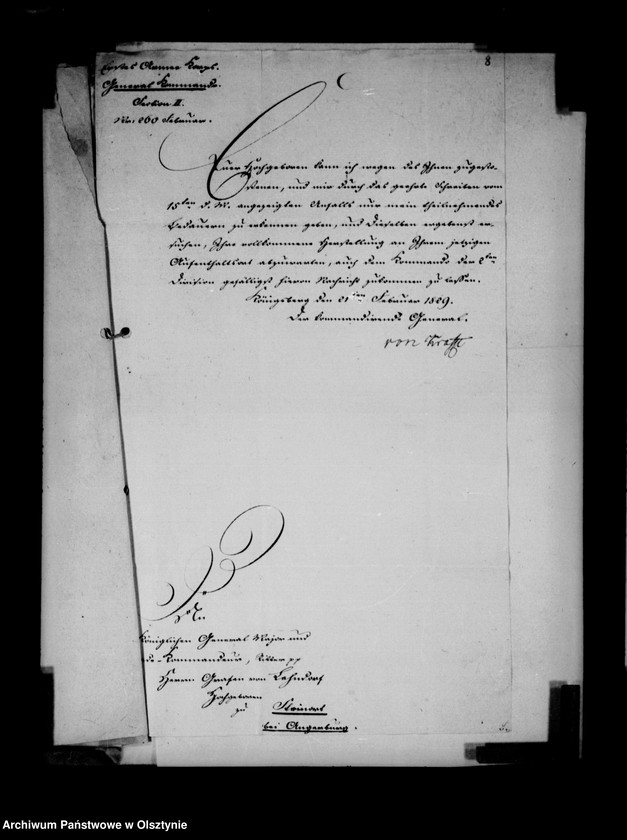 8
Erstes Armee Korps.
General Kommando.
Section II.
Nr: 260 Februar.
Euer Hochgeboren kann ich wegen des Ihnen zugesto-
ßenen, und mir durch das geehrte Schreiben vom
15ten d. M. angezeigten Unfalls nur mein theilnehmendes
Bedauern zu erkennen geben, und Dieselben ergebenst er-
suchen, Ihre vollkommene Herstellung an Ihrem jetzigen
Aufenthaltsort abzuwarten, auch dem Kommando der 2ten
Division gefälligst hievon Nachricht zukommen zu lassen.
Königsberg den 21ten Februar 1829.
Der kommandirende General.
von Krafft
An
Königlichen General Major und
Kommandeur, Ritter pp
Herrn Grafen von Lehndorf
Hochgeboren
zu
Steinort
bei Angerburg.
Archiwum Państwowe w Olsztynie